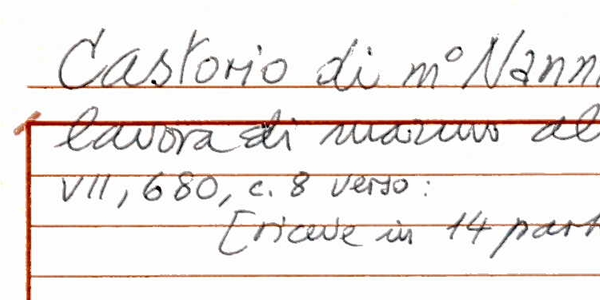 Castorio di m° Nanni
lavora di marmo al
VII, 680, c. 8 verso:
[riceve in 14 part